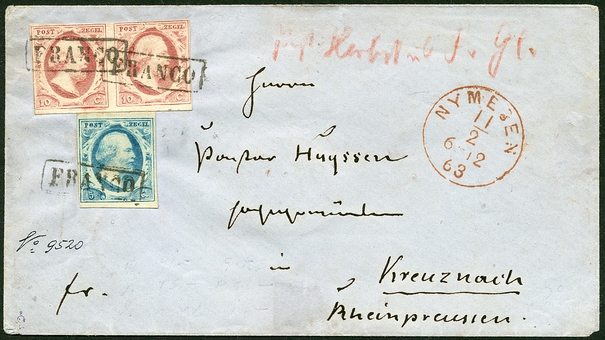 POST ZEGEL POST ZEGEL
FRANCO FRANCO
10 C. 10 C.
Herrn
NYMEGEN
11/2
6-12
63
POST ZEGEL
FRANCO
5 C.
Pastor Huyssen
in
Kreuznach
Rheinpreussen.
No 9520
fr.